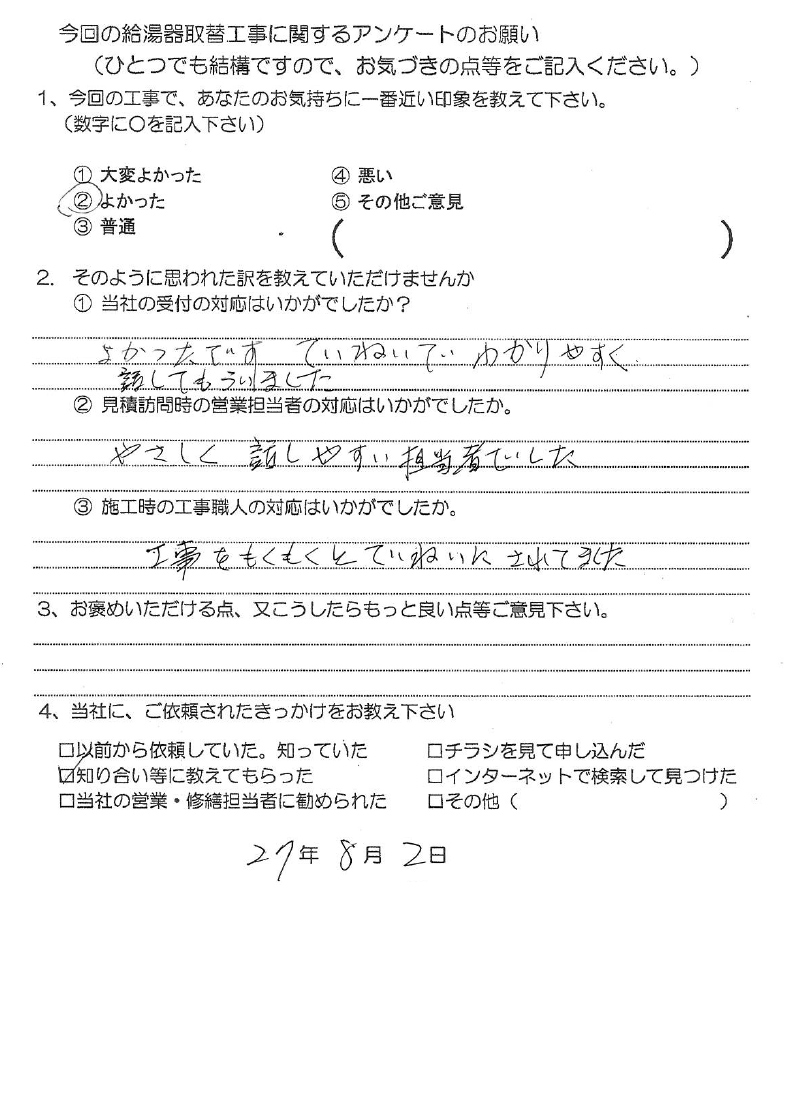 今回の給湯器取替工事に関するアンケートのお願い
（ひとつでも結構ですので、お気づきの点等をご記入ください。）
1、今回の工事で、あなたのお気持ちに一番近い印象を教えて下さい。
（数字に〇を記入下さい）
① 大変よかった ④ 悪い
② よかった ⑤ その他ご意見
③ 普通 （ ）
2. そのように思われた訳を教えていただけませんか
① 当社の受付の対応はいかがでしたか？
よかったです ていねいでい わかりやすく
話してもらいました
② 見積訪問時の営業担当者の対応はいかがでしたか。
やさしく 話しやすい担当者でした
③ 施工時の工事職人の対応はいかがでしたか。
工事をもくもくとていねいに されてました
3、お褒めいただける点、又こうしたらもっと良い点等ご意見下さい。
4、当社に、ご依頼されたきっかけをお教え下さい
□以前から依頼していた。知っていた □チラシを見て申し込んだ
☑知り合い等に教えてもらった □インターネットで検索して見つけた
□当社の営業・修繕担当者に勧められた □その他（ ）
27年 8月 2日